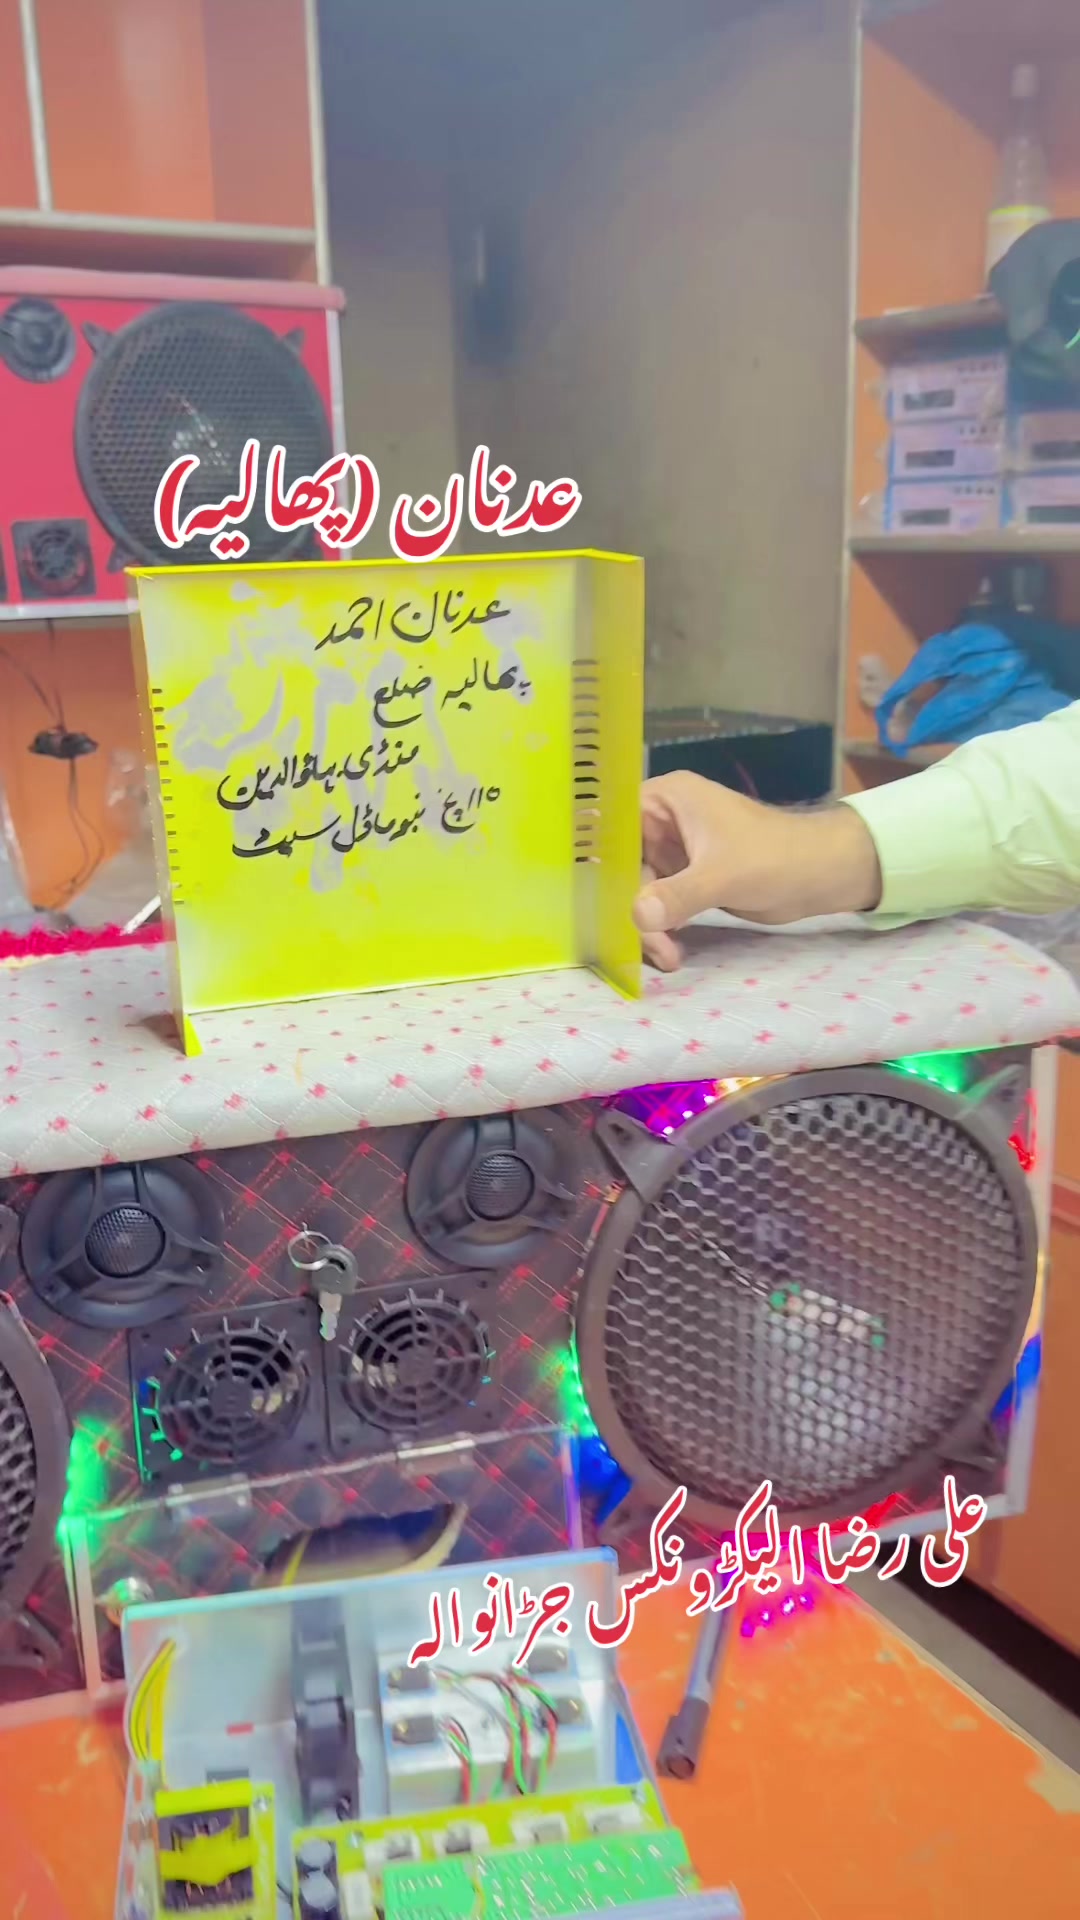 عدنان (پھالیہ)
عدنان احمد
پھالیہ ضلع
منڈی بہاؤالدین
نیو ماڈل سیٹ
علی رضا الیکڑونکس جڑانوالہ